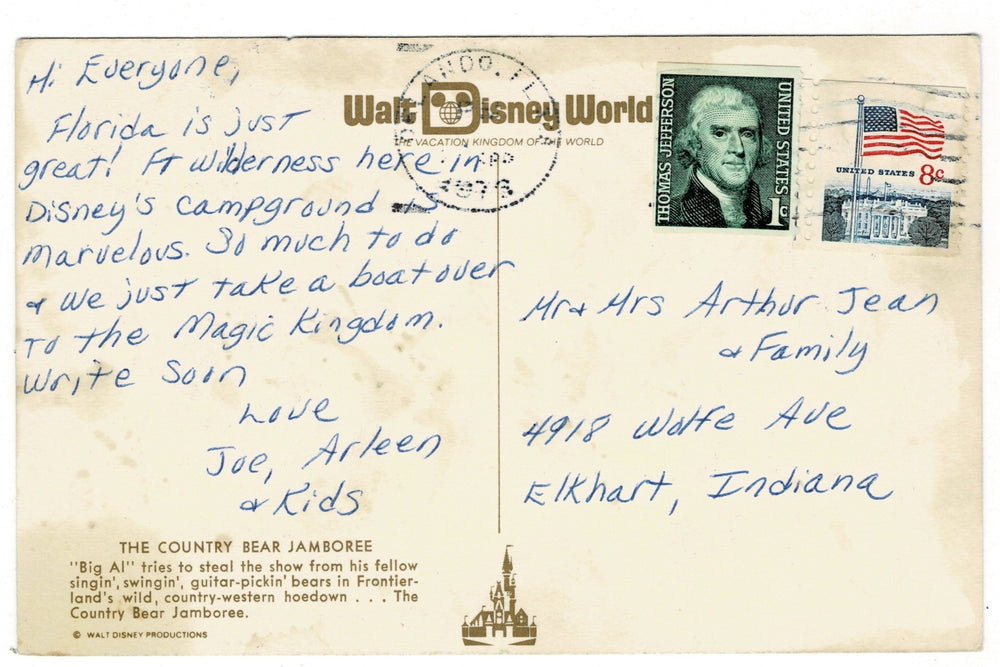 Hi Everyone,
Florida is just
great! Ft wilderness here in
Disney's campground is
marvelous. So much to do
& we just take a boat over
to the Magic Kingdom.
Write Soon
Love
Joe, Arleen
& Kids
THE COUNTRY BEAR JAMBOREE
"Big Al" tries to steal the show from his fellow
singin', swingin', guitar-pickin' bears in Frontier-
land's wild, country-western hoedown . . . The
Country Bear Jamboree.
© WALT DISNEY PRODUCTIONS
Walt Disney World
THE VACATION KINGDOM OF THE WORLD
ORLANDO, FL
THOMAS JEFFERSON
UNITED STATES
1c
UNITED STATES 8c
Mr & Mrs Arthur Jean
& Family
4918 Wolfe Ave
Elkhart, Indiana